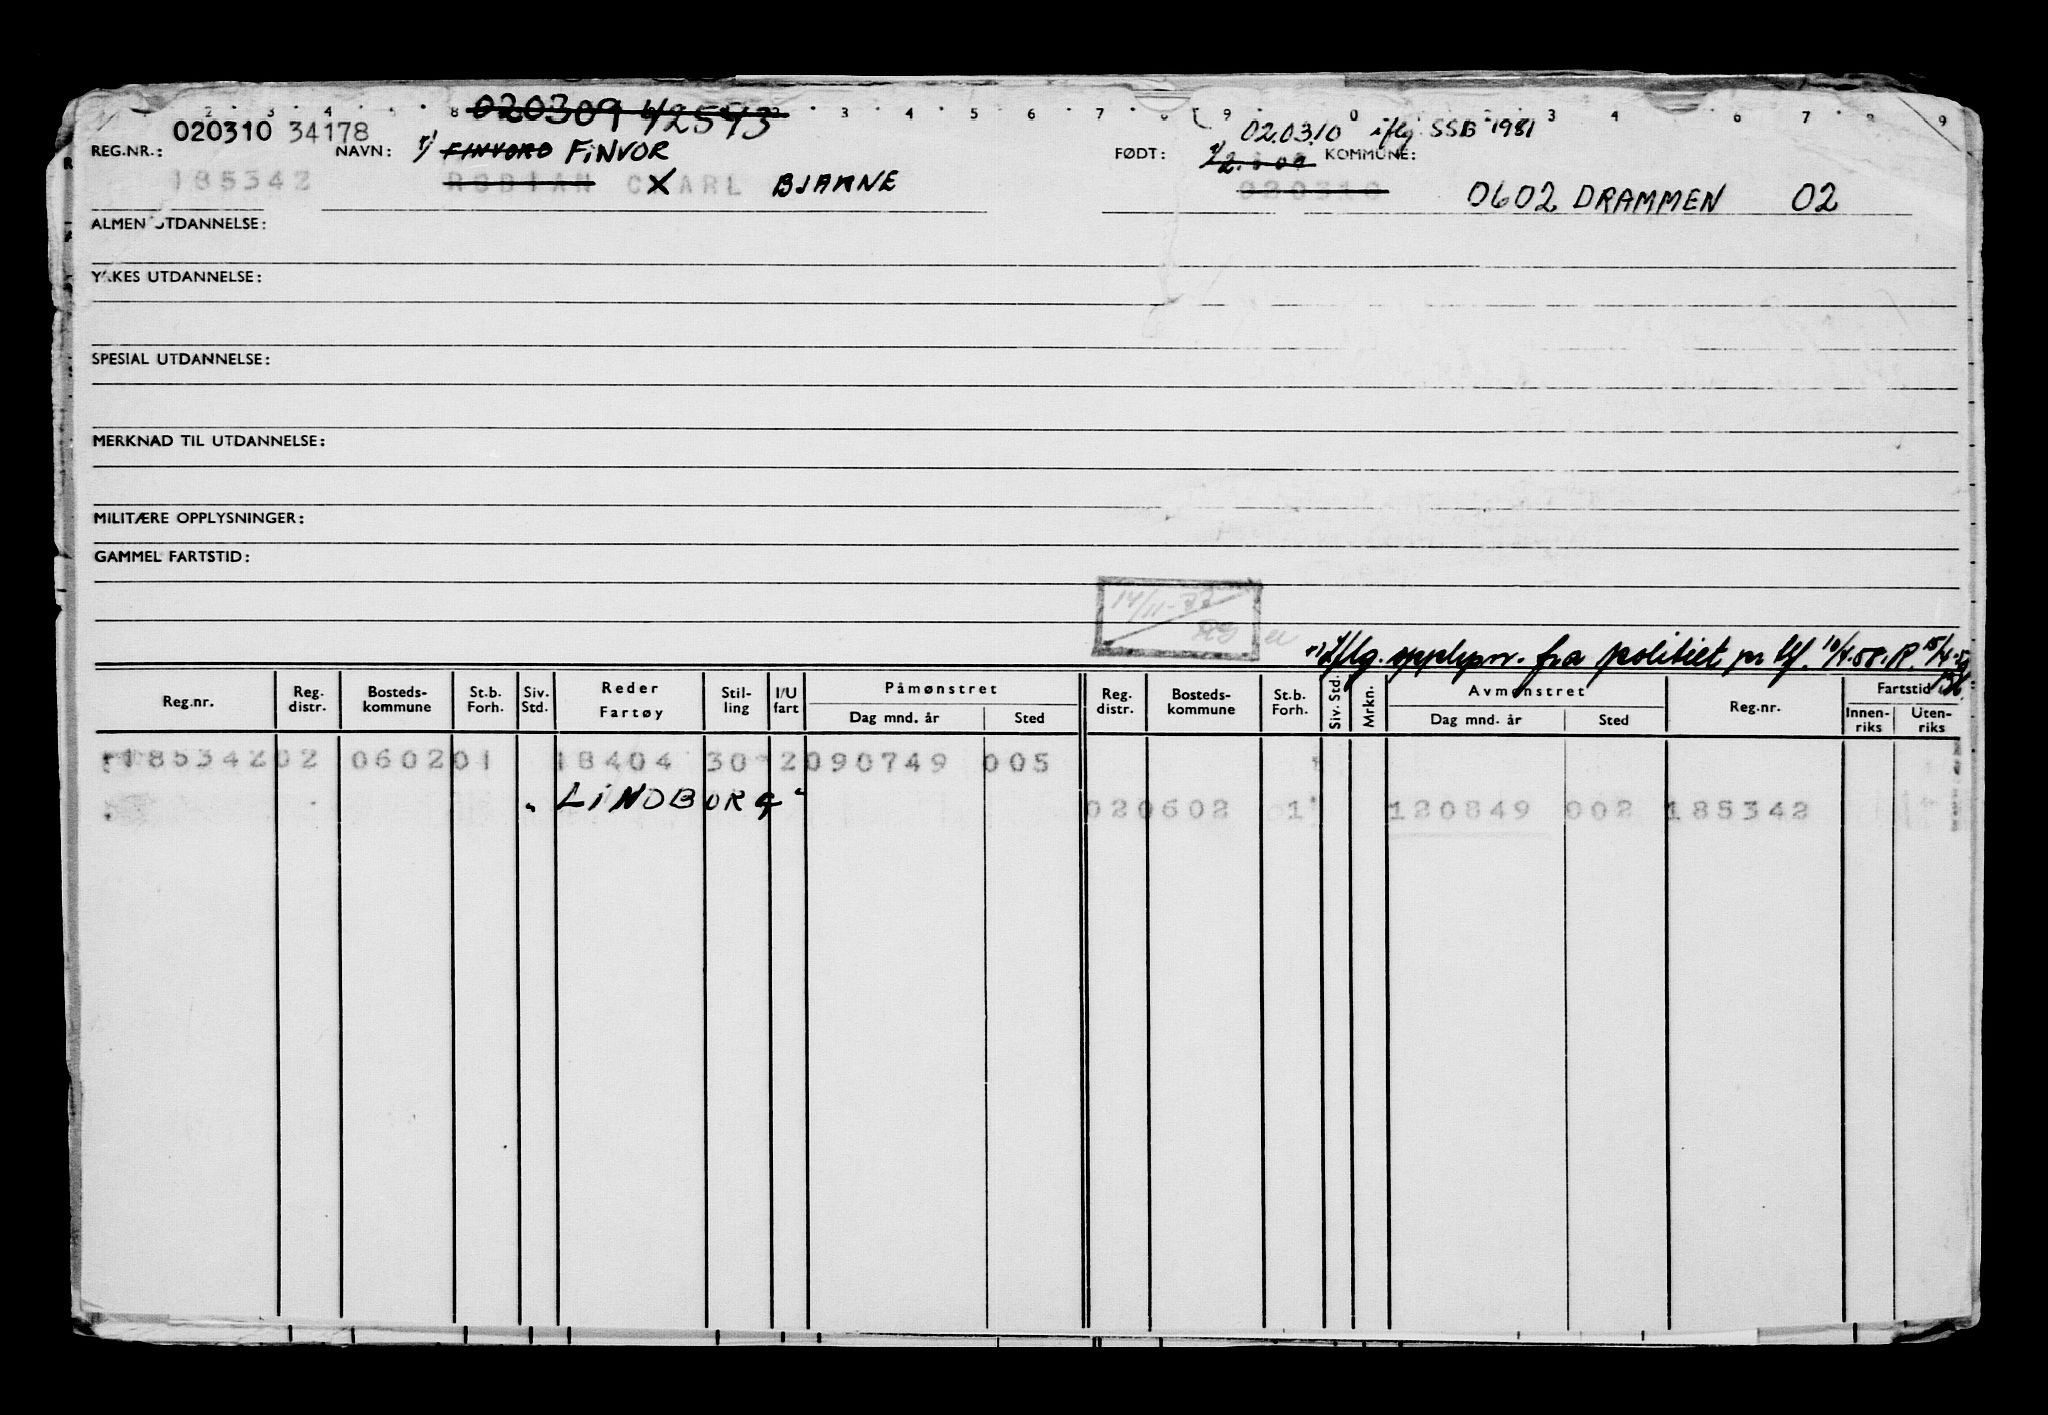 2 3 4 5 8 3 4 5 6 7 8 9 0 2 3 4 6 7 9
020309 42593
020310 34178
02.03.10 iflg SSB 1981
REG.NR.: NAVN: 1) FINVORD FINVOR FØDT: KOMMUNE:
185342 ROBIAN CXARL BJARNE 020310 0602 DRAMMEN 02
ALMEN UTDANNELSE:
YRKES UTDANNELSE:
SPESIAL UTDANNELSE:
MERKNAD TIL UTDANNELSE:
MILITÆRE OPPLYSNINGER:
GAMMEL FARTSTID:
14/11-77
1) Iflg. opplysn. fra politiet pr tlf. 10/4.58. R. 15/4-58
Reg.nr. Reg. distr. Bosteds-kommune St.b. Forh. Siv. Std. Reder Fartøy Stil-ling I/U fart Påmønstret Dag mnd. år Sted Reg. distr. Bosteds-kommune St.b. Forh. Siv. Std. Mrkn. Avmønstret Dag mnd. år Sted Reg.nr. Fartstid Innen-riks Uten-riks
185342 02 0602 01 18404 30 2 090749 005
"LINDBORG"
02 0602 01 120849 002 185342